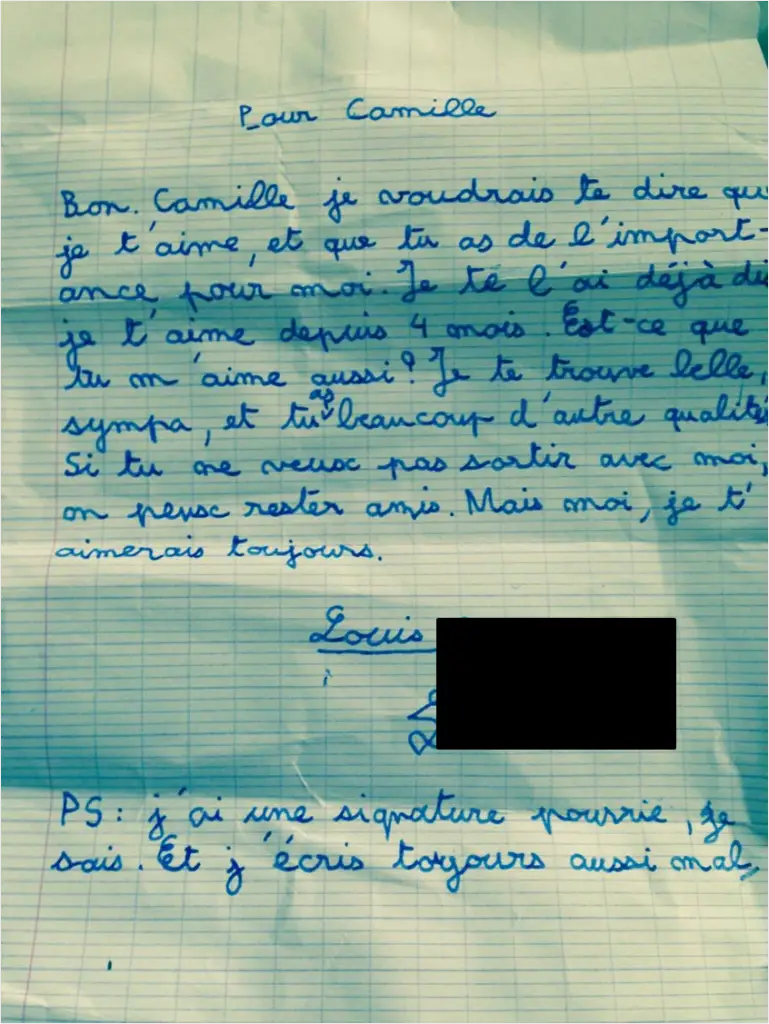 Pour Camille
Bon. Camille je voudrais te dire qu
je t'aime, et que tu as de l'import-
ance pour moi. Je te l'ai déjà di
je t'aime depuis 4 mois. Est-ce que
tu m'aime aussi? Je te trouve belle,
sympa, et tu as beaucoup d'autre qualité
Si tu ne veux pas sortir avec moi,
on peux rester amis. Mais moi, je t'
aimerais toujours.
Louis
PS: j'ai une signature pourrie, je
sais. Et j'écris toujours aussi mal,